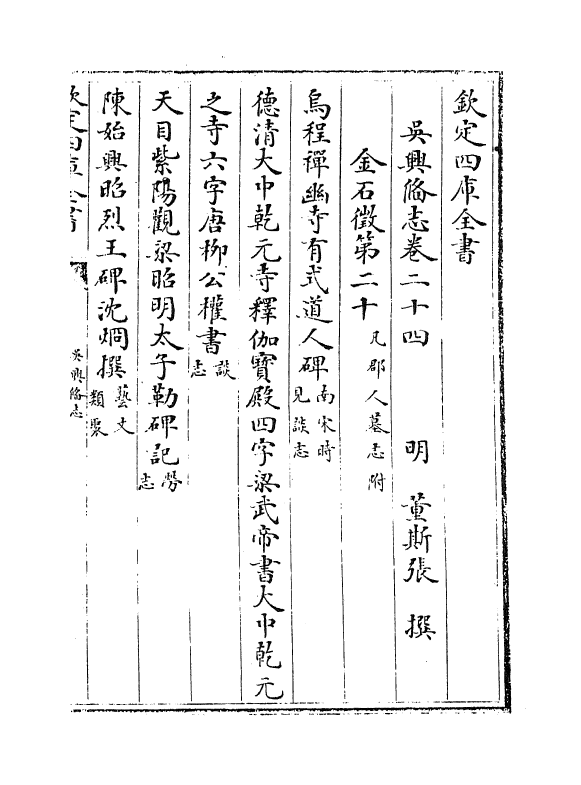 欽定四庫全書
吳興備志卷二十四　明　董斯張　撰
金石徵第二十凡郡人墓志附
烏程禪幽寺有式道人碑南宋時見談志
德清大中乾元寺釋伽寶殿四字梁武帝書大中乾元
之寺六字唐柳公權書談志
天目紫陽觀梁昭明太子勒碑記勞志
陳始興昭烈王碑沈炯撰藝文類聚
欽定四庫全書
吳興備志